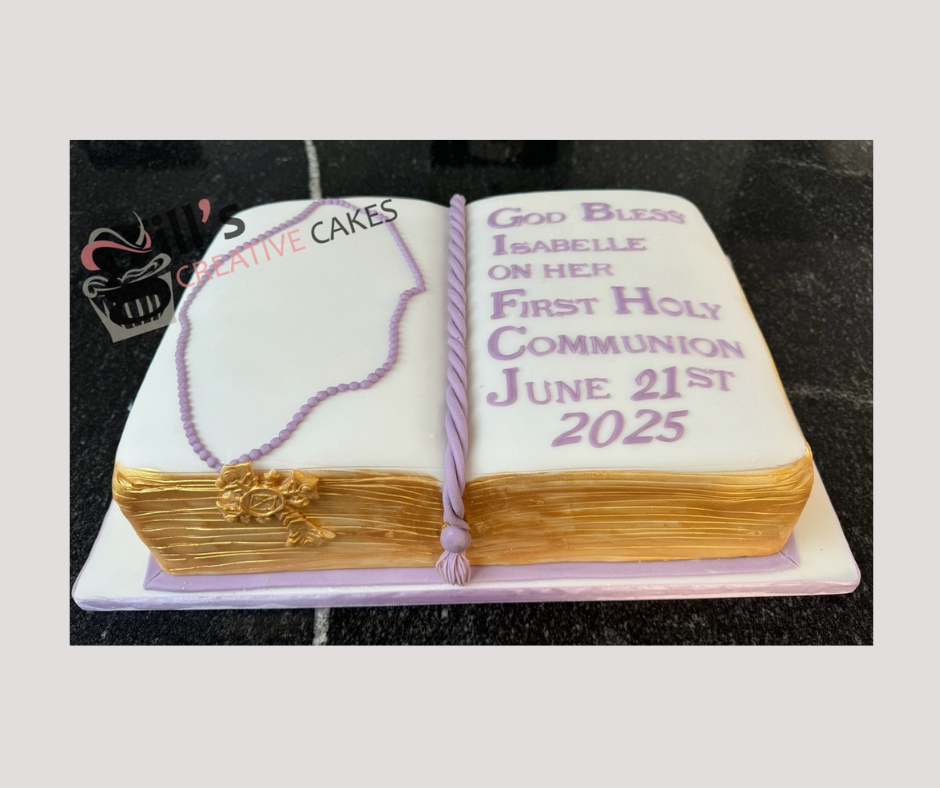 Jill's
CREATIVE CAKES
GOD BLESS
ISABELLE
ON HER
FIRST HOLY
COMMUNION
JUNE 21ST
2025